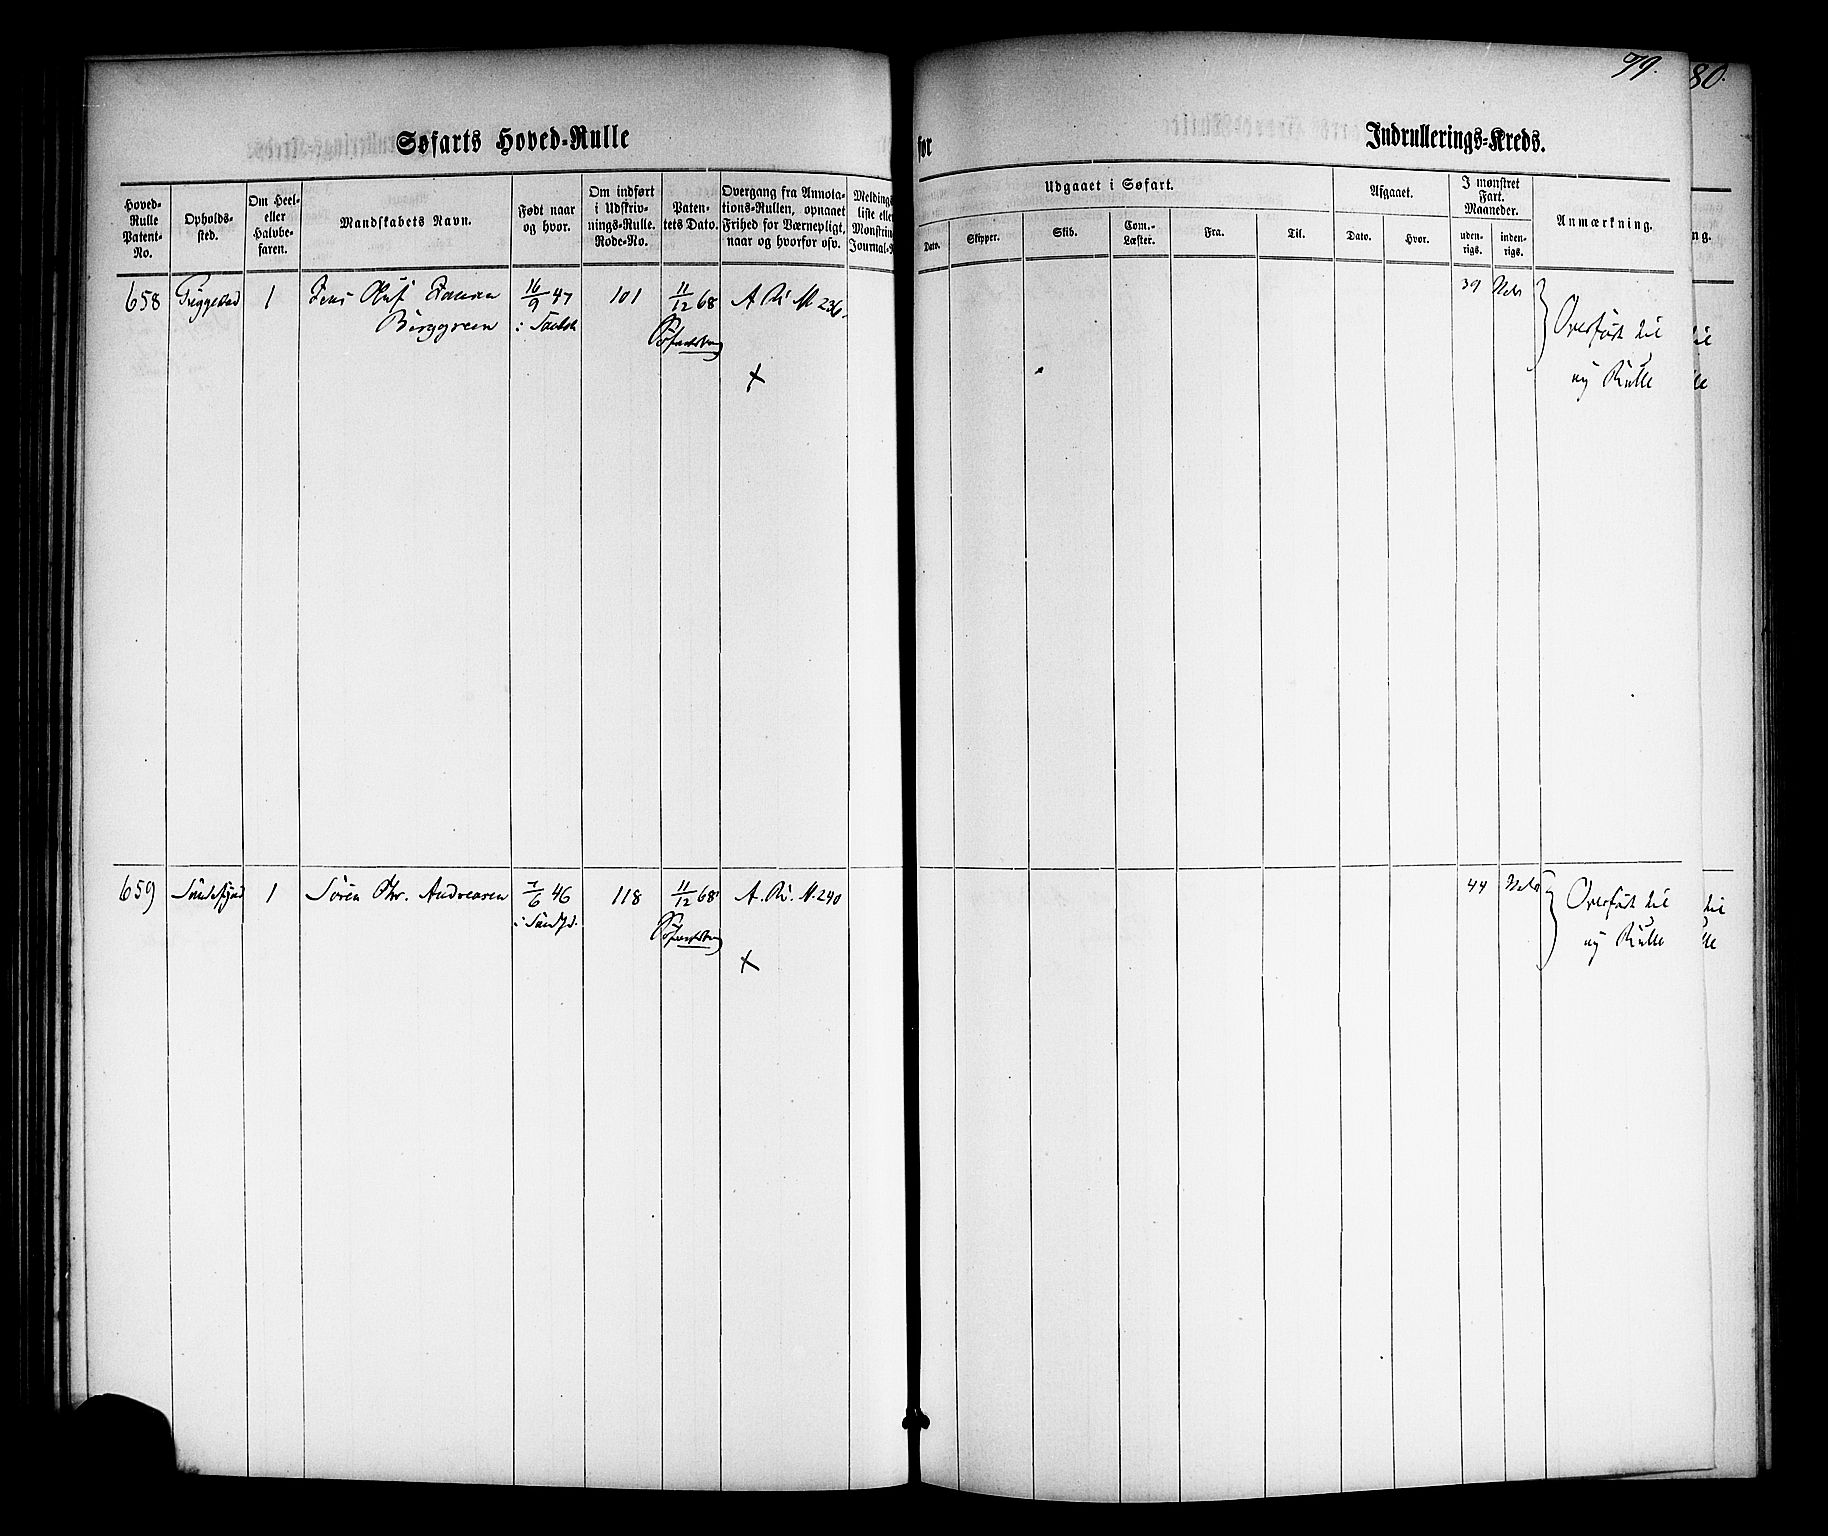 79.
80.
Søfarts Hoved-Rulle
for
Indrullerings-Kreds.
Hoved-
Rulle
Patent-
No.
Opholds-
sted.
Om Heel-
eller
Halvbe-
faren.
Mandskabets Navn.
Født naar
og hvor.
Om indført
i Udskriv-
nings-Rulle.
Rode-No.
Paten-
tets Dato.
Overgang fra Annota-
tions-Rullen, opnaaet
Frihed for Værnepligt,
naar og hvorfor osv.
Meldings
liste eller
Mønstrin
Journal-N
Udgaaet i Søfart.
Dato.
Skipper.
Skib.
Com.-
Læster.
Fra.
Til.
Afgaaet.
Dato.
Hvor.
I mønstret
Fart.
Maaneder.
uden-
rigs.
inden-
rigs.
Anmærkning.
ng.
658
1
Jens Oluf
Berggreen
16/9 47
101
11/12 68
A Ru No 236.
39
Overført til
ny Rulle
659
1
Søren Chr. Andreasen
7/6 46
i Sandfd.
118
11/12 68
A. Ru. No. 240
44
Overført til
ny Rulle